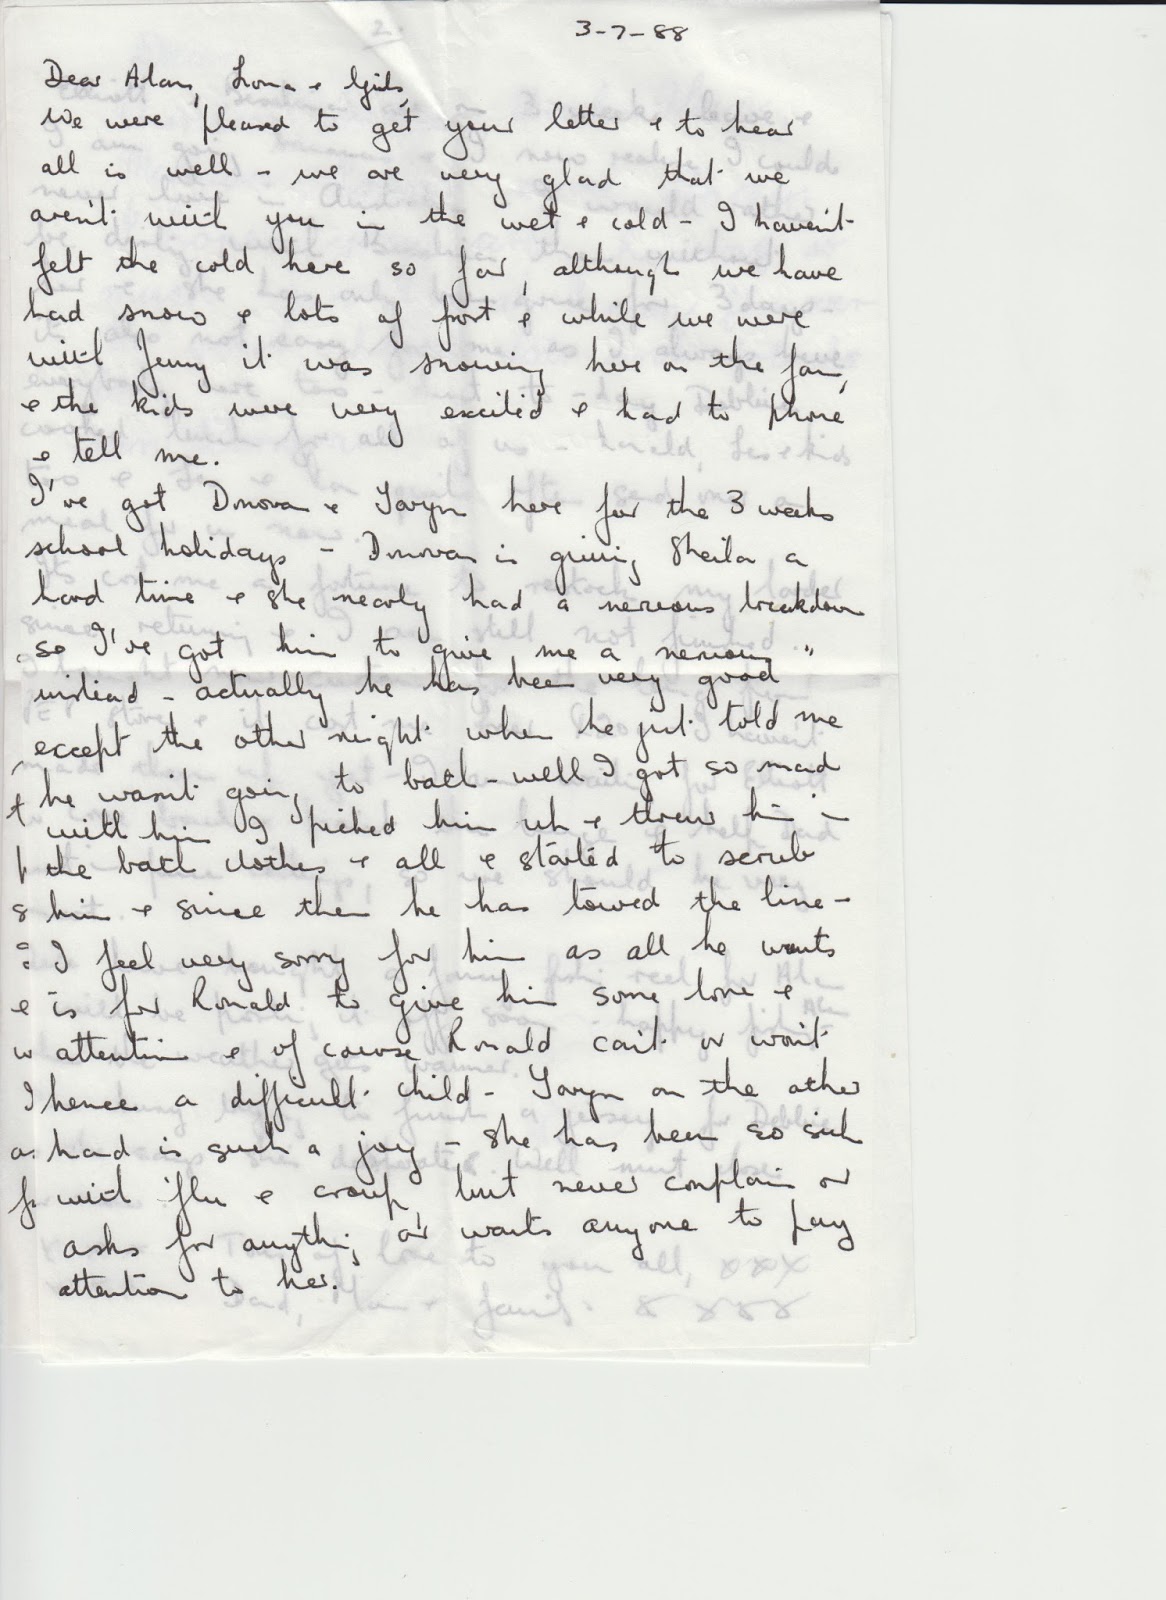 3-7-88
Dear Alan, Lorna & Girls,
We were pleased to get your letter & to hear
all is well - we are very glad that we
aren't with you in the wet & cold - I haven't
felt the cold here so far, although we have
had snow & lots of frost & while we were
with Jenny it was snowing here on the farm,
& the kids were very excited & had to phone
& tell me.
I've got Donovan & Taryn here for the 3 weeks
school holidays - Donovan is giving Sheila a
hard time & she nearly had a nervous breakdown
so I've got him to give me a nervous "
instead - actually he has been very good
except the other night when he just told me
he wasn't going to bath - well I got so mad
with him I picked him up & threw him in
the bath clothes & all & started to scrub
him & since then he has towed the line -
I feel very sorry for him as all he wants
is for Ronald to give him some love &
attention & of course Ronald can't or won't
hence a difficult child - Taryn on the other
hand is such a joy - she has been so sick
with 'flu & croup, but never complain or
asks for anything or wants anyone to pay
attention to her.